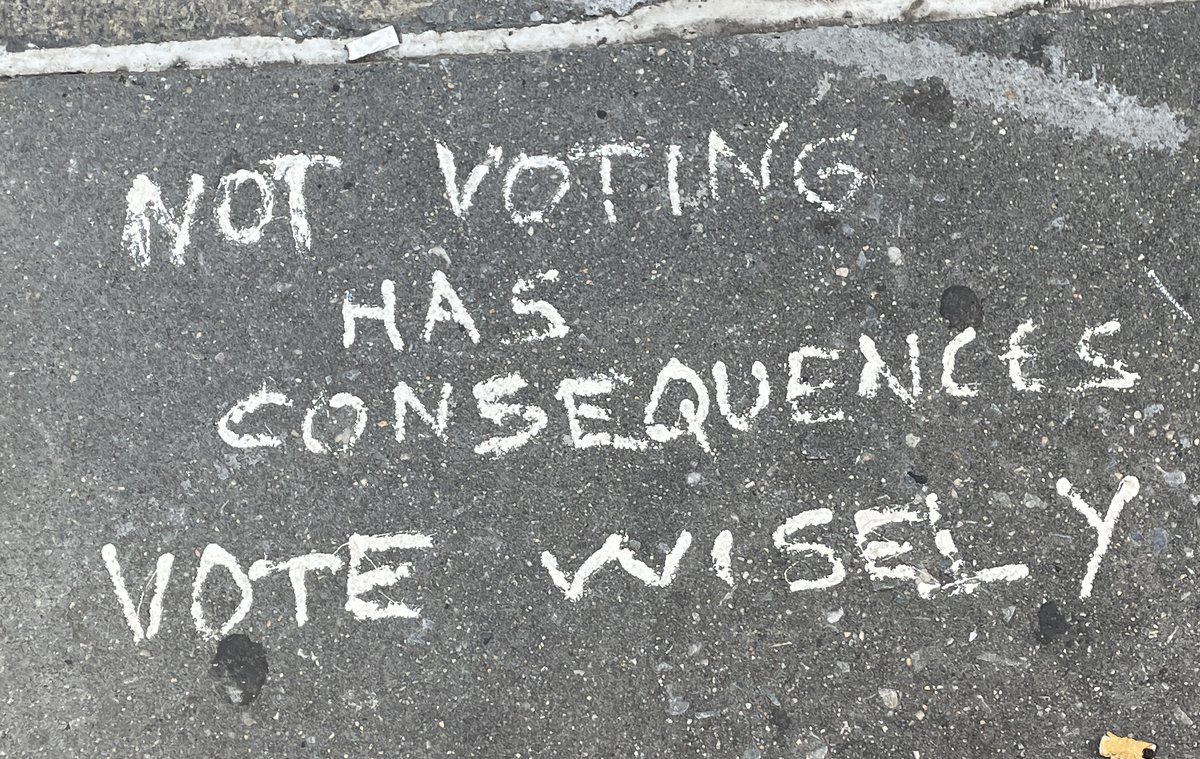 NOT VOTING
HAS
CONSEQUENCES
VOTE WISELY